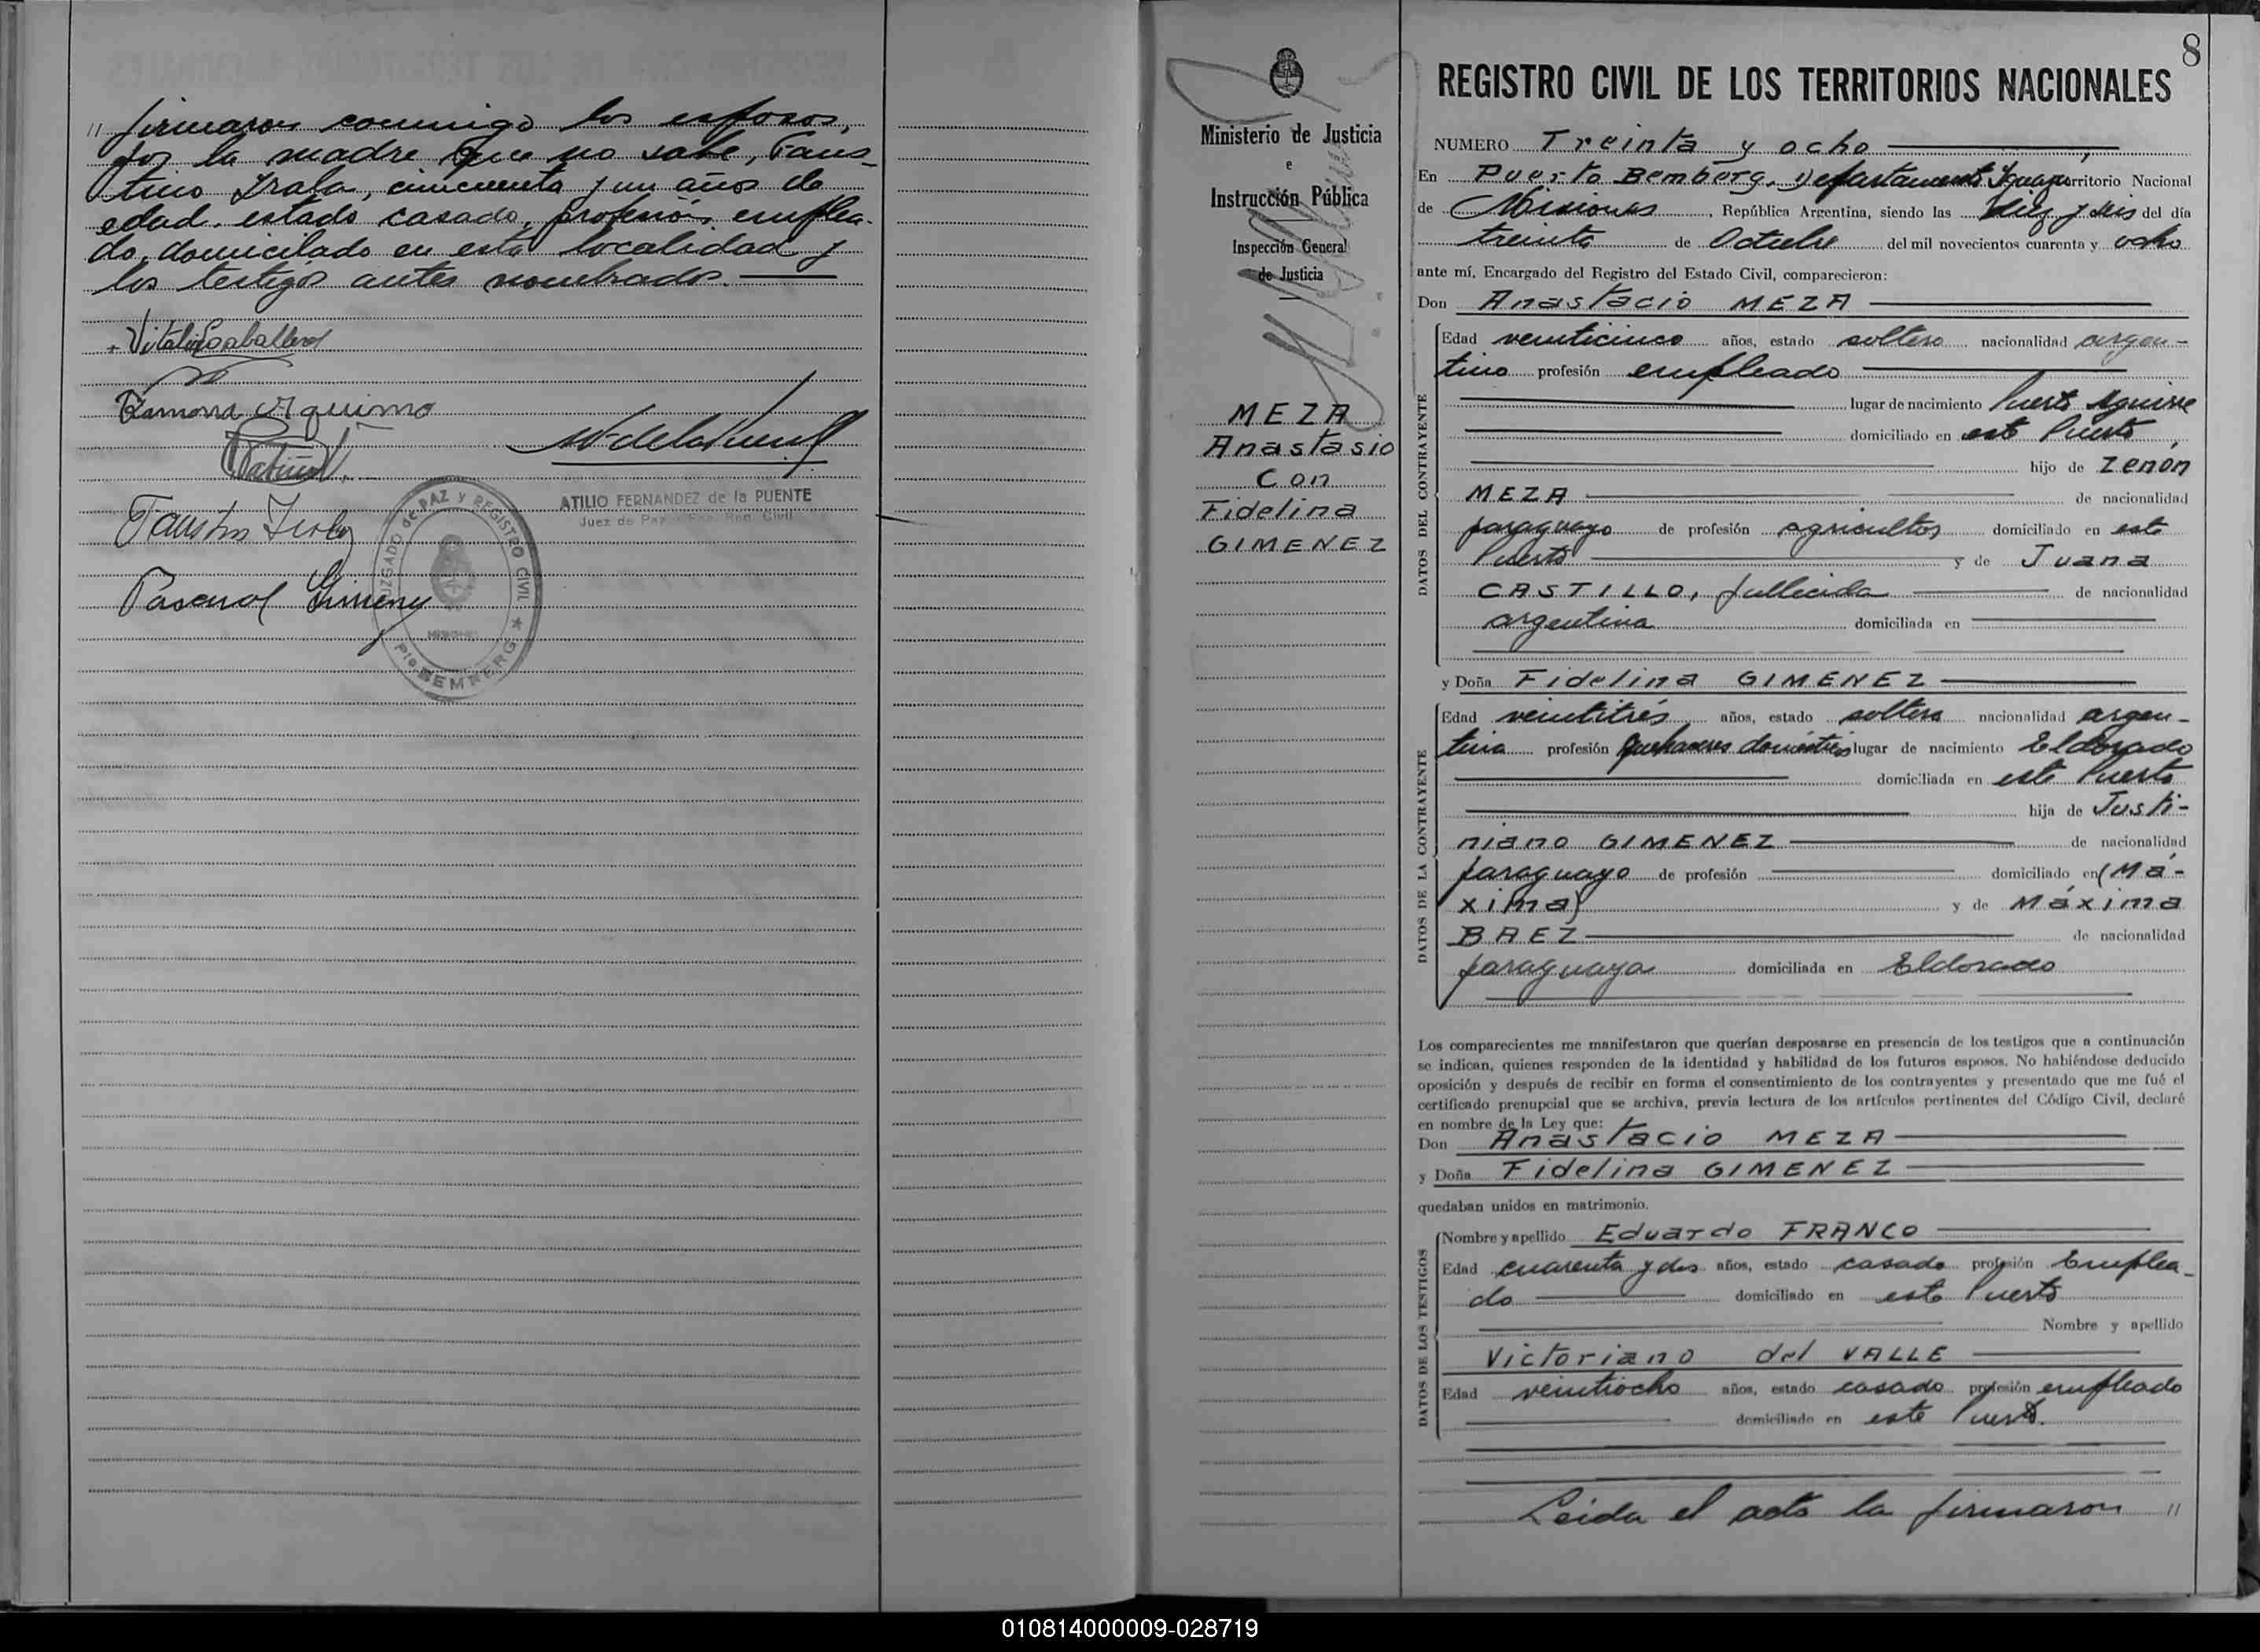 " firmaron conmigo los esposos,
por la madre que no sabe, Faus-
tino Irala, cincuenta y un años de
edad, estado casado, profesión, emplea-
do, domicilado en esta localidad y
los testigos antes nombrados.
Vitali Caballero
Ramona Aquino
ATILIO FERNANDEZ de la PUENTE
Juez de Paz
Faustino Irala
JUZGADO de PAZ y REGISTRO CIVIL
MISIONES
Pto. BEMBERG
Pascual Gimenez
Ministerio de Justicia
e
Instrucción Pública
Inspección General
de Justicia
MEZA
Anastasio
Con
Fidelina
GIMENEZ
8
REGISTRO CIVIL DE LOS TERRITORIOS NACIONALES
NUMERO Treinta y ocho
En Puerto Bemberg, Departamento Iguazú Territorio Nacional
de Misiones, República Argentina, siendo las diez y seis del día
treinta de Octubre del mil novecientos cuarenta y ocho
ante mí, Encargado del Registro del Estado Civil, comparecieron:
Don Anastacio MEZA
DATOS DEL CONTRAYENTE
Edad veinticinco años, estado soltero nacionalidad argen-
tino profesión empleado
lugar de nacimiento Puerto Aguirre
domiciliado en este Puerto,
hijo de Zenón
MEZA de nacionalidad
paraguayo de profesión agricultor domiciliado en este
Puerto y de Juana
CASTILLO, fallecida de nacionalidad
argentina domiciliada en
y Doña Fidelina GIMENEZ
DATOS DE LA CONTRAYENTE
Edad veintitrés años, estado soltera nacionalidad argen-
tina profesión quehaceres domésticos lugar de nacimiento Eldorado
domiciliada en este Puerto
hija de Justi-
niano GIMENEZ de nacionalidad
paraguayo de profesión domiciliado en (Má-
xima) y de Máxima
BAEZ de nacionalidad
paraguaya domiciliada en Eldorado
Los comparecientes me manifestaron que querían desposarse en presencia de los testigos que a continuación
se indican, quienes responden de la identidad y habilidad de los futuros esposos. No habiéndose deducido
oposición y después de recibir en forma el consentimiento de los contrayentes y presentado que me fué el
certificado prenupcial que se archiva, previa lectura de los artículos pertinentes del Código Civil, declaré
en nombre de la Ley que:
Don Anastacio MEZA
y Doña Fidelina GIMENEZ
quedaban unidos en matrimonio.
DATOS DE LOS TESTIGOS
Nombre y apellido Eduardo FRANCO
Edad cuarenta y dos años, estado casado profesión Emplea-
do domiciliado en este Puerto
Nombre y apellido
Victoriano del VALLE
Edad veintiocho años, estado casado profesión empleado
domiciliado en este Puerto.
Leída el acta la firmaron "
010814000009-028719